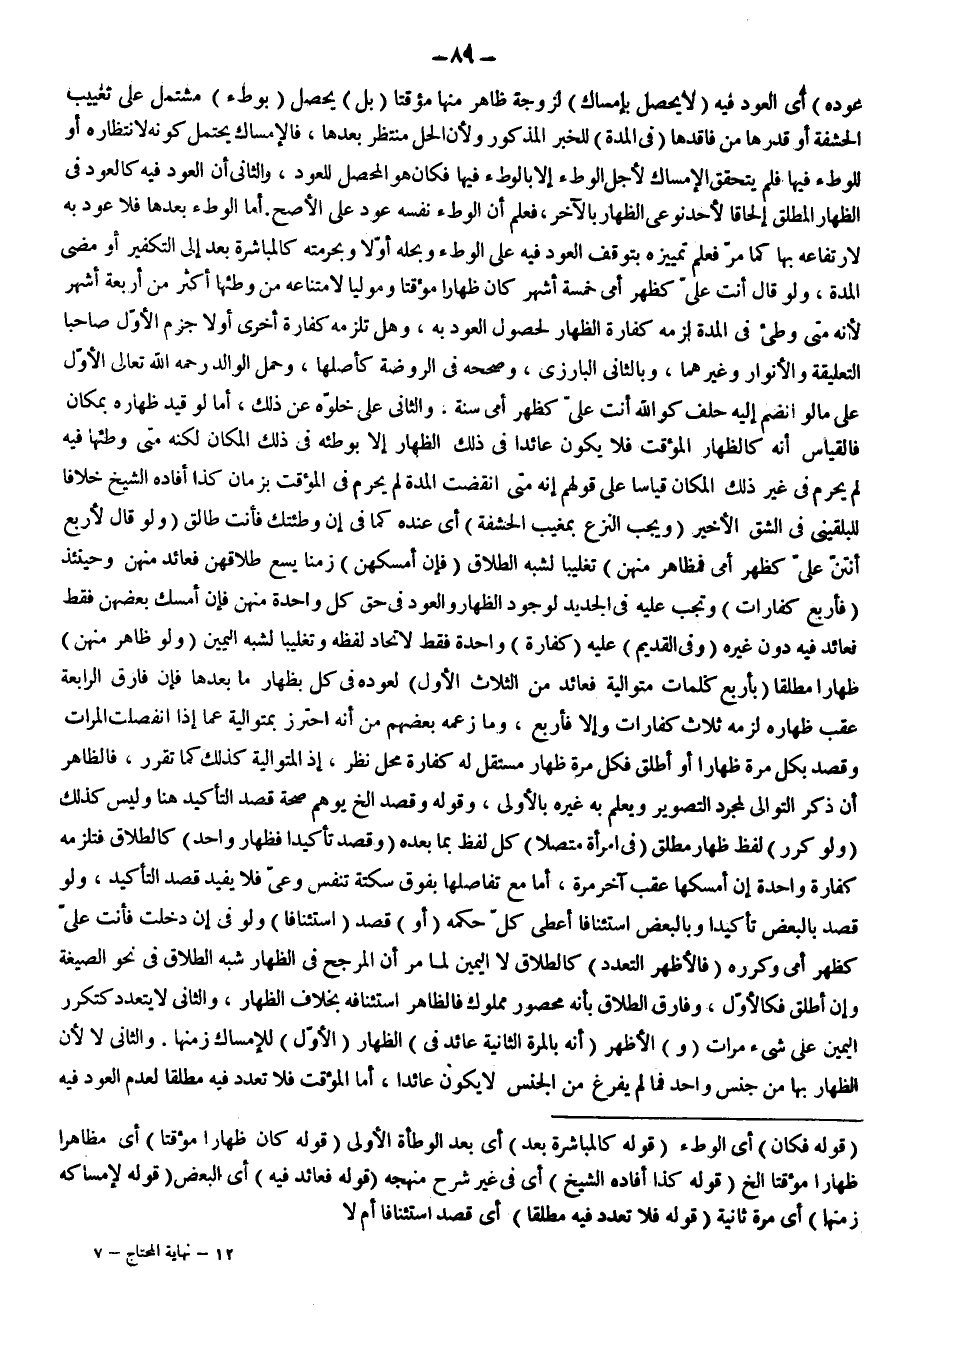 – ٨٩ –
عوده ) أى العود فيه ( لا يحصل بإمساك ) لزوجة ظاهر منها مؤقتا ( بل ) يحصل ( بوطء ) مشتمل على تغييب
الحشفة أو قدرها من فاقدها ( فى المدة ) للخبر المذكور ولأن الحل منتظر بعدها ، فالإمساك يحتمل كونه لانتظاره أو
للوطء فيها فلم يتحقق الإمساك لأجل الوطء إلا بالوطء فيها فكان هو المحصل للعود ، والثانى أن العود فيه كالعود فى
الظهار المطلق إلحاقا لأحد نوعى الظهار بالآخر ، فعلم أن الوطء نفسه عود على الأصح . أما الوطء بعدها فلا عود به
لارتفاعه بها كما مرّ فعلم تميزه بتوقف العود فيه على الوطء وبحله أوّلا وبحرمته كالمباشرة بعد إلى التكفير أو مضى
المدة ، ولو قال أنت علىّ كظهر أمى خمسة أشهر كان ظهارا مؤقتا وموليا لامتناعه من وطئها أكثر من أربعة أشهر
لأنه متى وطئ فى المدة لزمه كفارة الظهار لحصول العود به ، وهل تلزمه كفارة أخرى أولا جزم الأوّل صاحبا
التعليقة والأنوار وغيرهما ، وبالثانى البارزى ، وصححه فى الروضة كأصلها ، وحمل الوالد رحمه الله تعالى الأوّل
على مالو انضم إليه حلف كو الله أنت علىّ كظهر أمى سنة . والثانى على خلوّه عن ذلك ، أما لو قيد ظهاره بمكان
فالقياس أنه كالظهار المؤقت فلا يكون عائدا فى ذلك الظهار إلا بوطئه فى ذلك المكان لكنه متى وطئها فيه
لم يحرم فى غير ذلك المكان قياسا على قولهم إنه متى انقضت المدة لم يحرم فى المؤقت بزمان كذا أفاده الشيخ خلافا
للبلقينى فى الشق الأخير ( ويجب النزع بمغيب الحشفة ) أى عنده كما فى إن وطئتك فأنت طالق ( ولو قال لأربع
أنتنّ علىّ كظهر أمى فمظاهر منهن ) تغليبا لشبه الطلاق ( فإن أمسكهن ) زمنا يسع طلاقهن فعائد منهن وحينئذ
( فأربع كفارات ) وتجب عليه فى الجديد لوجود الظهار والعود فى حق كل واحدة منهن فإن أمسك بعضهن فقط
فعائد فيه دون غيره ( وفى القديم ) عليه ( كفارة ) واحدة فقط لاتحاد لفظه وتغليبا لشبه اليمين ( ولو ظاهر منهن )
ظهارا مطلقا ( بأربع كلمات متوالية فعائد من الثلاث الأول ) لعوده فى كل بظهار ما بعدها فإن فارق الرابعة
عقب ظهاره لزمه ثلاث كفارات وإلا فأربع ، وما زعمه بعضهم من أنه احترز بمتوالية عما إذا انفصلت المرات
وقصد بكل مرة ظهارا أو أطلق فكل مرة ظهار مستقل له كفارة محل نظر ، إذ المتوالية كذلك كما تقرر ، فالظاهر
أن ذكر التوالى لمجرد التصوير ويعلم به غيره بالأولى ، وقوله وقصد الخ يوهم صحة قصد التأكيد هنا وليس كذلك
( ولو كرر ) لفظ ظهار مطلق ( فى امرأة متصلا ) كل لفظ بما بعده ( وقصد تأكيدا فظهار واحد ) كالطلاق فتلزمه
كفارة واحدة إن أمسكها عقب آخر مرة ، أما مع تفاصلها بفوق سكتة تنفس وعىّ فلا يفيد قصد التأكيد ، ولو
قصد بالبعض تأكيدا وبالبعض استئنافا أعطى كلّ حكمه ( أو ) قصد ( استئنافا ) ولو فى إن دخلت فأنت علىّ
كظهر أمى وكرره ( فالأظهر التعدد ) كالطلاق لا اليمين لما مر أن المرجح فى الظهار شبه الطلاق فى نحو الصيغة
وإن أطلق فكالأوّل ، وفارق الطلاق بأنه محصور مملوك فالظاهر استئنافه بخلاف الظهار ، والثانى لا يتعدد كتكرر
اليمين على شىء مرات ( و ) الأظهر ( أنه بالمرة الثانية عائد فى ) الظهار ( الأوّل ) للإمساك زمنها . والثانى لا لأن
الظهار بها من جنس واحد فما لم يفرغ من الجنس لا يكون عائدا ، أما المؤقت فلا تعدد فيه مطلقا لعدم العود فيه
( قوله فكان ) أى الوطء ( قوله كالمباشرة بعد ) أى بعد الوطأة الأولى ( قوله كان ظهارا مؤقتا ) أى مظاهرا
ظهارا مؤقتا الخ ( قوله كذا أفاده الشيخ ) أى فى غير شرح منهجه ( قوله فعائد فيه ) أى البعض ( قوله لإمساكه
زمنها ) أى مرة ثانية ( قوله فلا تعدد فيه مطلقا ) أى قصد استئنافا أم لا
١٢ – نهاية المحتاج – ٧